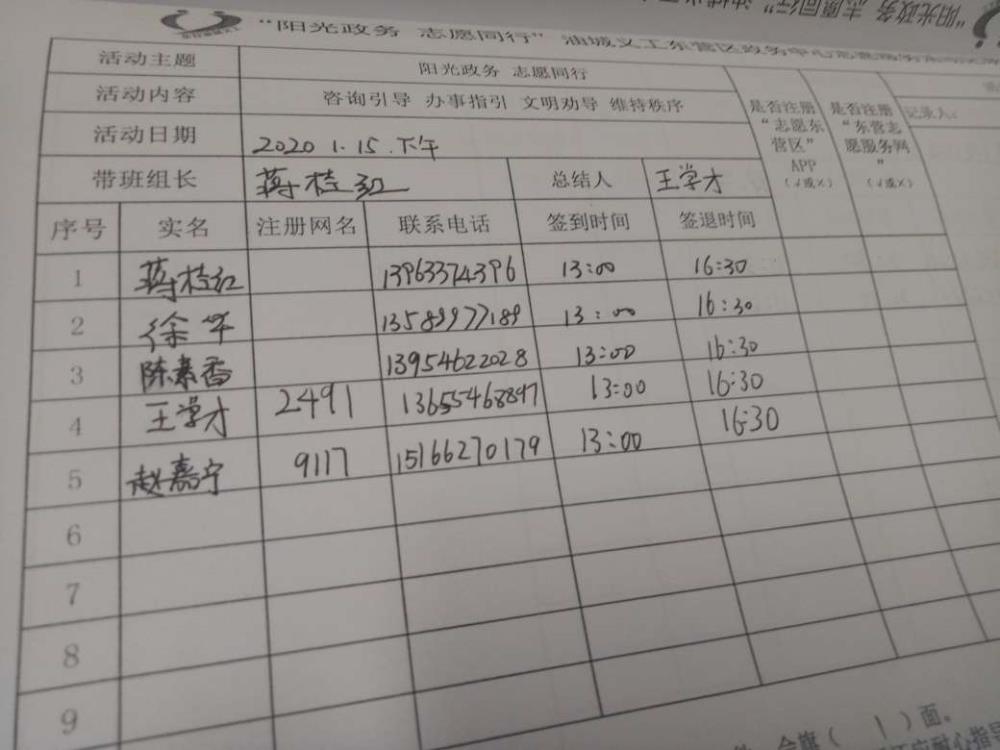 “阳光政务 志愿同行” 油城义工东营区政务中心志愿服务
活动主题 阳光政务 志愿同行
活动内容 咨询引导 办事指引 文明劝导 维持秩序
活动日期 2020 1.15.下午
带班组长 蒋桂红 总结人 王学才
是否注册“志愿东营区”APP(√或×) 是否注册“东营志愿服务网”(√或×) 记录人:
序号 实名 注册网名 联系电话 签到时间 签退时间
1 蒋桂红 13963374396 13:00 16:30
2 徐华 13589977189 13:00 16:30
3 陈素香 13954622028 13:00 16:30
4 王学才 2491 13655468897 13:00 16:30
5 赵嘉宁 9117 15166270179 13:00 16:30
6
7
8
9
会旗( 1 )面。
耐心指导
“阳光政务 志愿同行”